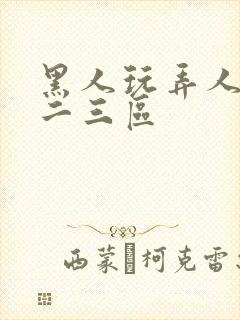 黑人玩弄人
二三區
西蒙·柯克雷